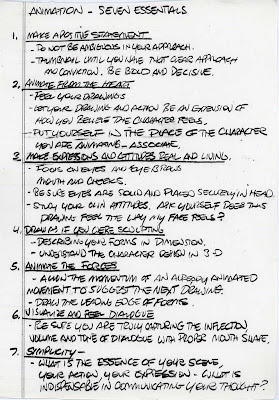 ANIMATION - SEVEN ESSENTIALS
1. MAKE A POSITIVE STATEMENT
- DO NOT BE AMBIGUOUS IN YOUR APPROACH.
- THUMBNAIL UNTIL YOU HAVE THAT CLEAR APPROACH
AND CONVICTION. BE BOLD AND DECISIVE.
2. ANIMATE FROM THE HEART
- FEEL YOUR DRAWINGS
- LET YOUR DRAWING AND ACTION BE AN EXTENSION OF
HOW YOU BELIEVE THE CHARACTER FEELS.
- PUT YOURSELF IN THE PLACE OF THE CHARACTER
YOU ARE ANIMATING - ASSOCIATE.
3. MAKE EXPRESSIONS AND ATTITUDES REAL AND LIVING.
- FOCUS ON EYES AND EYEBROWS
MOUTH AND CHEEKS.
- BE SURE EYES ARE SOLID AND PLACED SECURELY IN HEAD.
- STUDY YOUR OWN ATTITUDES. ASK YOURSELF DOES THIS
DRAWING FEEL THE WAY MY FACE FEELS?
4. DRAW AS IF YOU WERE SCULPTING
- DESCRIBING YOUR FORMS IN DIMENSION.
- UNDERSTAND THE CHARACTER DESIGN IN 3-D
5. ANIMATE THE FORCES
- ALLOW THE MOMENTUM OF AN ALREADY ANIMATED
MOVEMENT TO SUGGEST THE NEXT DRAWING.
- DRAW THE LEADING EDGE OF FORMS.
6. VISUALIZE AND FEEL DIALOGUE
- BE SURE YOU ARE TRULY CAPTURING THE INFLECTION,
VOLUME AND TONE OF DIALOGUE WITH PROPER MOUTH SHAPE.
7. SIMPLICITY -
- WHAT IS THE ESSENCE OF YOUR SCENE,
YOUR ACTION, YOUR EXPRESSION - WHAT IS
INDISPENSABLE IN COMMUNICATING YOUR THOUGHT?